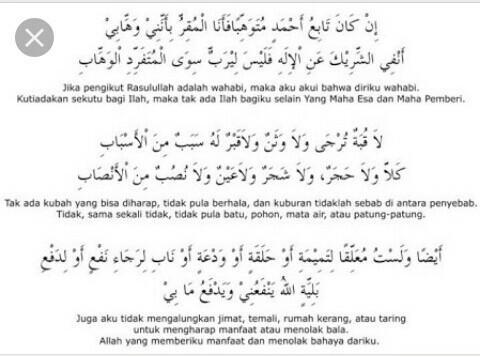 إِنْ كَانَ تَابِعُ أَحْمَدٍ مُتَوَهِّبًافَأَنَا الْمُقِرُّ بِأَنَّنِيْ وَهَّابِيْ
أَنْفِي الشَّرِيْكَ عَنِ الْإِلَهِ فَلَيْسَ لِيْرَبٌّ سِوَى الْمُتَفَرِّدِ الْوَهَّابِ
Jika pengikut Rasulullah adalah wahabi, maka aku akui bahwa diriku wahabi.
Kutiadakan sekutu bagi Ilah, maka tak ada Ilah bagiku selain Yang Maha Esa dan Maha Pemberi.
لاَ قُبَةٌ تُرْجَى وَلاَ وَثَنٌ وَلاَقَبْرٌ لَهُ سَبَبٌ مِنَ الْأَسْبَابِ
كَلاَّ وَلاَ حَجَرٌ، وَلاَ شَجَرٌ وَلاَعَيْنٌ وَلاَ نُصُبٌ مِنَ الْأَنْصَابِ
Tak ada kubah yang bisa diharap, tidak pula berhala, dan kuburan tidaklah sebab di antara penyebab.
Tidak, sama sekali tidak, tidak pula batu, pohon, mata air, atau patung-patung.
أَيْضًا وَلَسْتُ مُعَلِّقًا لِتَمِيْمَةٍ أَوْ حَلَقَةٍ أَوْ وَدْعَةٍ أَوْ نَابِ لِرَجَاءِ نَفْعٍ أَوْ لِدَفْعِ
بَلِيَّةٍ اللهُ يَنْفَعُنِيْ وَيَدْفَعُ مَا بِيْ
Juga aku tidak mengalungkan jimat, temali, rumah kerang, atau taring
untuk mengharap manfaat atau menolak bala.
Allah yang memberiku manfaat dan menolak bahaya dariku.